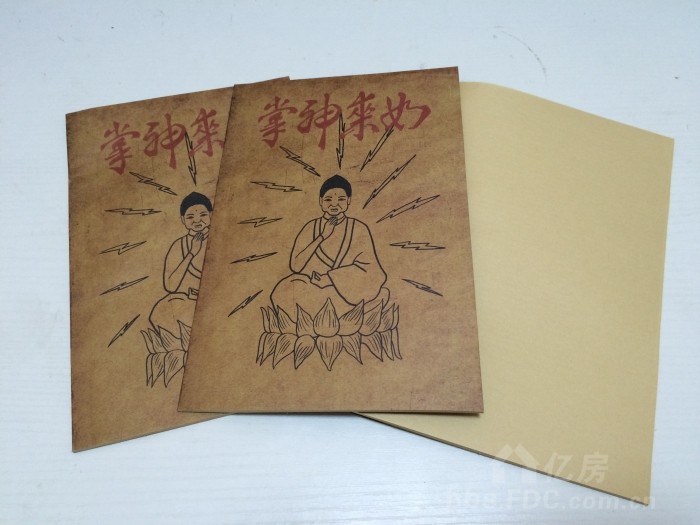 来神掌
如来神掌
亿房
FDC.com.cn